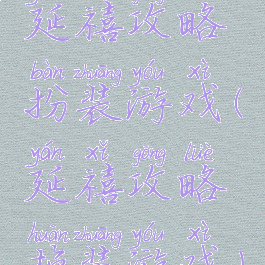 延禧攻略
bàn zhuāng yóu xì
扮装游戏(
yán xǐ gōng lüè
延禧攻略
huàn zhuāng yóu xì